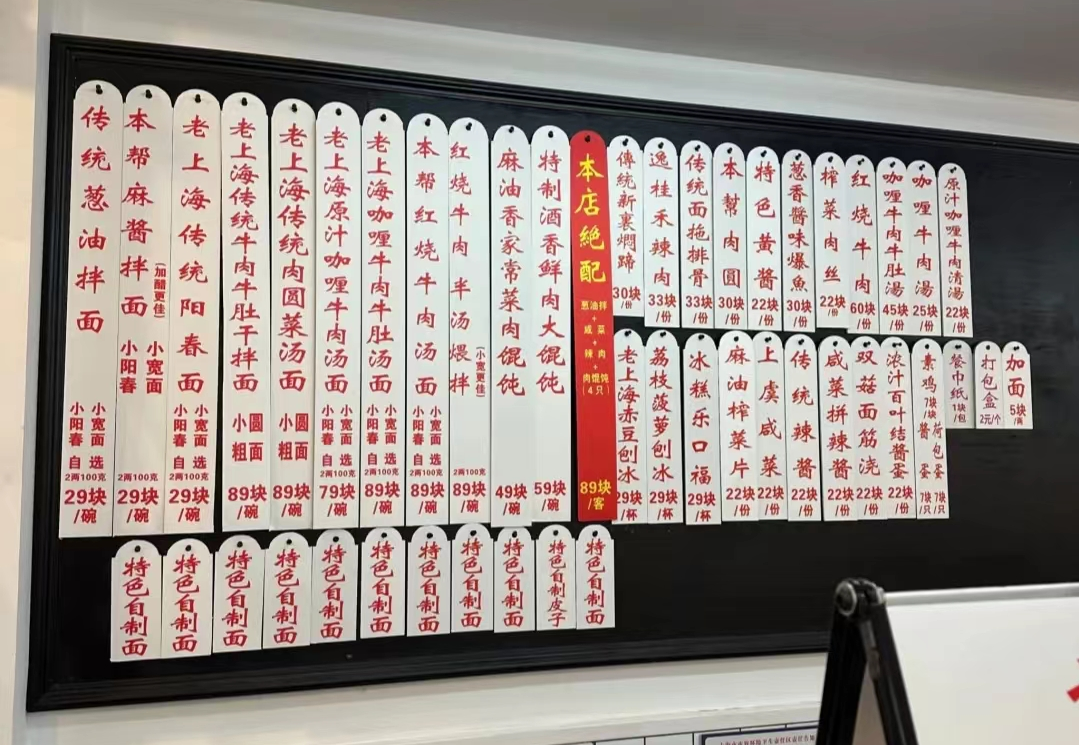 传统葱油拌面 小阳春 小宽面 自选 2两100克 29块/碗
本帮麻酱拌面 (加醋更佳) 小阳春 小宽面 2两100克 29块/碗
老上海传统阳春面 小阳春 小宽面 自选 2两100克 29块/碗
老上海传统牛肉牛肚干拌面 小圆粗面 89块/碗
老上海传统肉圆菜汤面 小圆粗面 89块/碗
老上海原汁咖喱牛肉汤面 小阳春 小宽面 自选 2两100克 79块/碗
老上海咖喱牛肉牛肚汤面 小阳春 小宽面 自选 2两100克 89块/碗
本帮红烧牛肉汤面 小阳春 小宽面 自选 2两100克 89块/碗
红烧牛肉半汤煨拌 (小宽更佳) 2两100克 89块/碗
麻油香家常菜肉馄饨 49块/碗
特制酒香鲜肉大馄饨 59块/碗
本店絶配 葱油拌+咸菜+辣肉+肉馄饨(4只) 89块/客
傳統新裏焖蹄 30块/份
逸桂禾辣肉 33块/份
传统面拖排骨 33块/份
本幫肉圓 30块/份
特色黄醬 22块/份
葱香醬味爆魚 30块/份
榨菜肉丝 22块/份
红烧牛肉 60块/份
咖喱牛肉牛肚湯 45块/份
咖喱牛肉湯 25块/份
原汁咖喱牛肉清湯 22块/份
老上海赤豆刨冰 29块/杯
荔枝菠萝刨冰 29块/杯
冰糕乐口福 29块/杯
麻油榨菜片 22块/份
上虞咸菜 22块/份
传统辣醬 22块/份
咸菜拼辣醬 22块/份
双菇面筋浇 22块/份
浓汁百叶结醬蛋 22块/份
素鸡 7块/块 醬蛋 7块/只 荷包蛋 7块/只
餐巾纸 1块/包
打包盒 2元/个
加面 5块/两
特色自制面
特色自制面
特色自制面
特色自制面
特色自制面
特色自制面
特色自制面
特色自制面
特色自制面
特色自制皮子
特色自制面